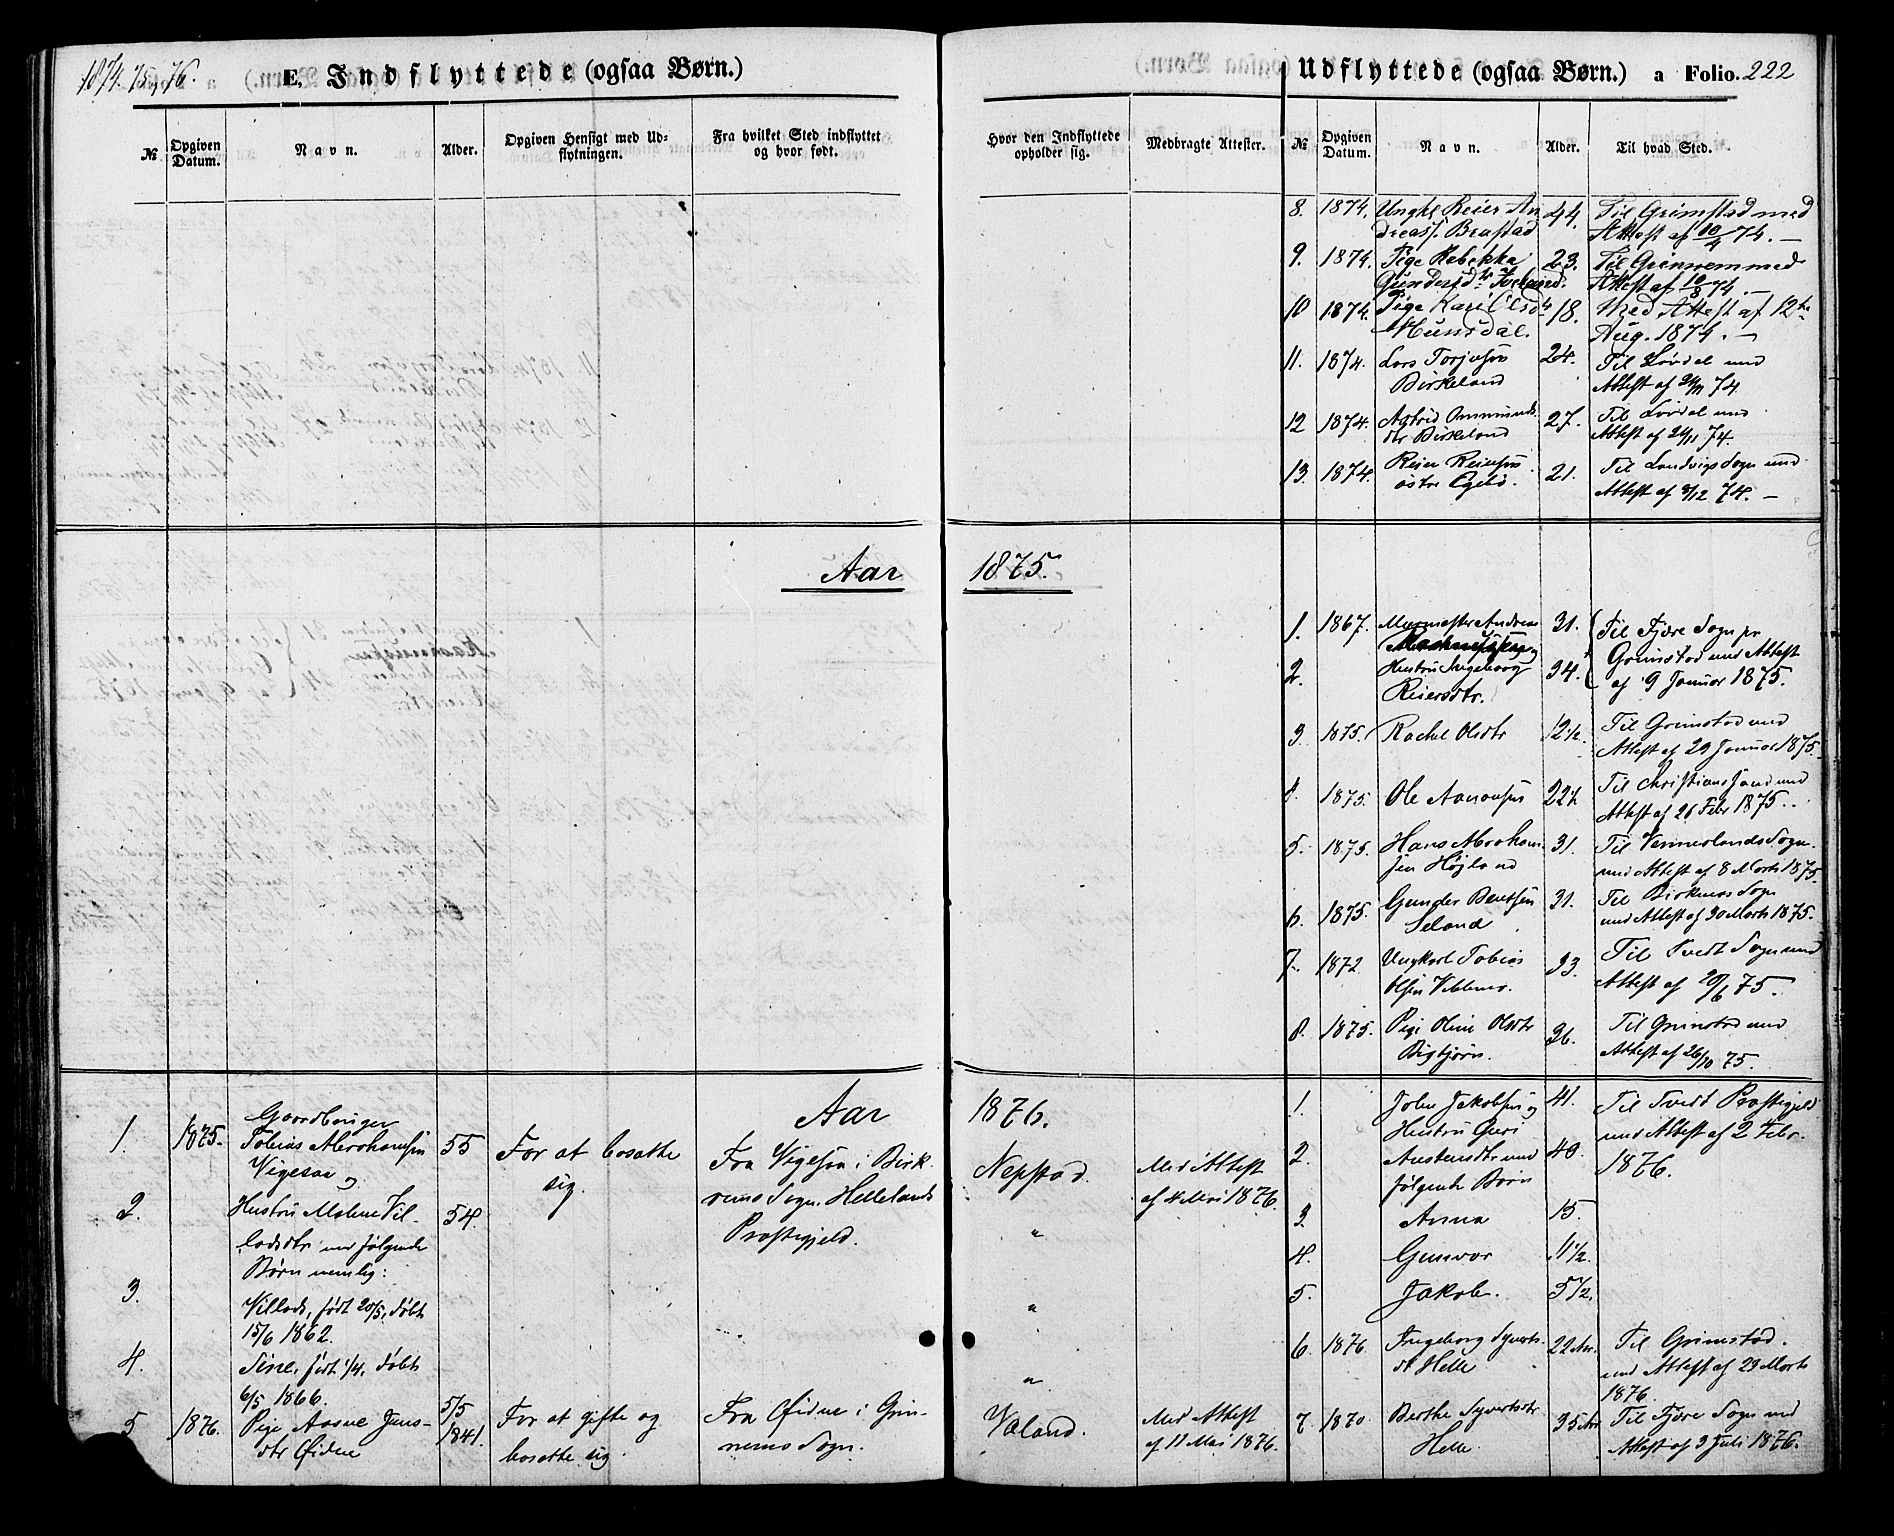 1874. 75, 76.
E. Indflyttede (ogsaa Børn.)
№
Opgiven Datum.
Navn.
Alder.
Opgiven Hensigt med Ud-
flytningen.
Fra hvilket Sted indflyttet
og hvor født.
Hvor den Indflyttede
opholder sig.
Medbragte Attester.
Udflyttede (ogsaa Børn.) a Folio. 222
№
Opgiven Datum.
Navn.
Alder.
Til hvad Sted.
8. 1874. Ungkl Reier An 44. Til Grimstad med
dreass. Brastad Attest af 10/4 74. —
9. 1874. Pige Rebekka 23. Til med
Gundersd. Attest af 10/8 74. —
10 1874. Pige Kari Olsd. 18. Med Attest af 12te
Aug. 1874. —
11. 1874. Lars Torjusen 24. Til Løvdal med
Birkeland Attest af 74.
12 1874. Astrid Ommunds 27. Til Løvdal med
dtr Birkeland Attest af 74.
13. 1874. Reier Reiersen 21. Til Landvigs Sogn med
Attest af 9/12 74. —
Aar 1875.
1. 1867. Murmester Andreas 31. Til Fjære Sogn pr
Grimstad med Attest
2. Hustru Ingeborg 34. af 9 Januar 1875.
Reiersdtr.
3 1875. Rachel Olsdtr 12 1/2. Til Grimstad med
Attest af 29 Januar 1875.
4. 1875. Ole Aanonsen 22 1/2 Til Christianssand med
Attest af 26 Febr 1875.
5. 1875. Hans Abraham- 31. Til Vennerlands Sogn.
sen Højland med Attest af 8 Marts 1875.
6. 1875. Gunder Bentsen 31. Til Birkenes Sogn
Seland med Attest af 30 Marts 1875.
7. 1872. Ungkarl Tobias 33. Til Tvedt Sogn med
Olsen Attest af 20/6 75.
8. 1875. Pige Oline Olsdtr 26. Til Grimstad med
Bigtjørn. Attest af 26/10 75.
Aar 1876.
1. 1875. Gaardbruger
Tobias Abrahamsen 55 For at bosætte Fra Vigesaa i Birk- Nepstad. Med Attest
Vigesaa og sig. rems Sogn. Hellelands af 4 Mai 1876.
2. Hustru Malene Vil- 54. Præstegjeld. "
ladsdtr med følgende
Børn nemlig:
3. Villads, født 20/5, døbt "
15/6 1862.
4. Sine, født 1/4, døbt "
6/5 1866.
5 1876. Pige Aasne Jens- 5/5 For at gifte og Fra Øidne i Grin- Valand. Med Attest
dtr Øidne 1841. bosætte sig. nems Sogn. af 11 Mai 1876.
1. John Jakobsen og 41. Til Tvedt Præstegjeld
Hustru Guri med Attest af 2 Febr.
2. Austensdtr med 40. 1876.
følgende Børn
3. Anna 15.
4. Gunvor 11 1/2.
5. Jakob. 5 1/2.
6. 1876. Ingeborg Syverts- 22 Aar. Til Grimstad.
dt Helle med Attest af 23 Marts
1876.
7. 1870. Berthe Syvertsdtr 35 Aar Til Fjære Sogn med
Helle. Attest af 3 Juli 1876.